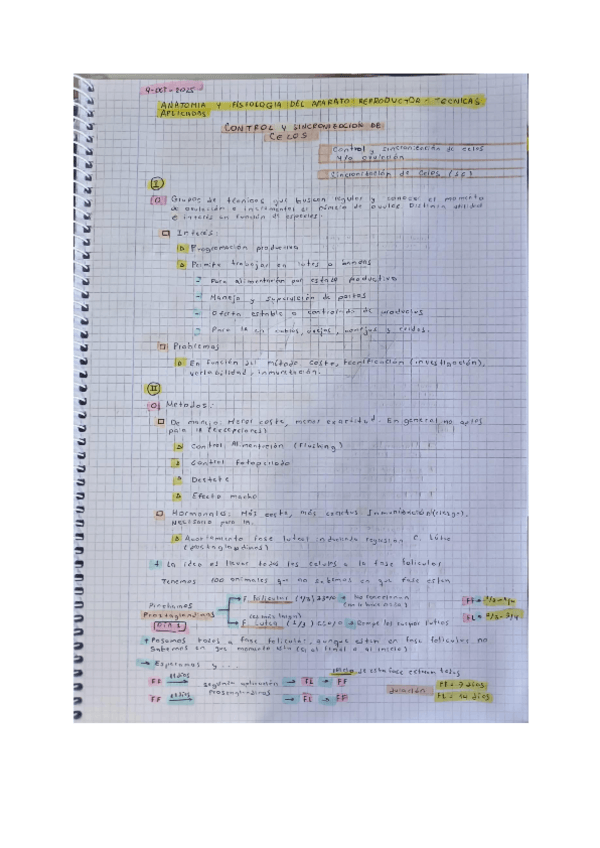 9-oct-2025
ANATOMIA Y FISIOLOGIA DEL APARATO REPRODUCTOR - TECNICAS
APLICADAS
CONTROL Y SINCRONIZACION DE
CELOS
Control y sincronización de celos
y/o ovulación
Sincronización de celos
I
Grupos de técnicas que buscan regular y conocer el momento
de ovulación e incrementar el número de óvulos. Distinta utilidad
e interés en función de especies.
Interés:
Programación productiva
Permite trabajar en lotes o bandas
Para alimentación por estado productivo
Manejo y supervisión de partos
Oferta estable o controlada de productos
Para IA en cabras, ovejas, conejas y cerdos.
Problemas
En función del método: coste, tecnificación (investigación),
variabilidad, inmunización.
II
Metodos:
De manejo: Menor coste, menor exactitud. En general no aptos
para IA (excepciones)
Control Alimentación (flushing)
Control fotoperiodo
Destete
Efecto macho
Hormonales: Más coste, más exactos. Inmunización (riesgo).
Necesario para IA.
Acortamiento fase luteal induciendo regresión C. Lúteo
(prostaglandinas)
La idea es llevar todos los celos a la fase folicular
Tenemos 100 animales que no sabemos en que fase estan
Pinchamos
Prostaglandinas
DIA 1
F. folicular (1/3) 33%
No funcionan
F. Lutea (2/3)
Rompe los cuerpos luteos
FF
FL
Pasamos todos a fase folicular, aunque esten en fase folicular no
sabemos en que momento está (si al final o al inicio)
Esperamos y ...
inicio de esta fase estaran todos
FF
segunda aplicación
FL
FF
FF
prostaglandinas
FL
FF
duración
FF = 7 dias
FL = 14 dias